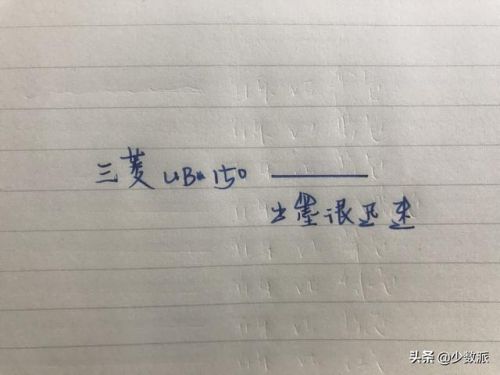 三菱 UB-150 ——
出墨很迅速
头条 @少数派